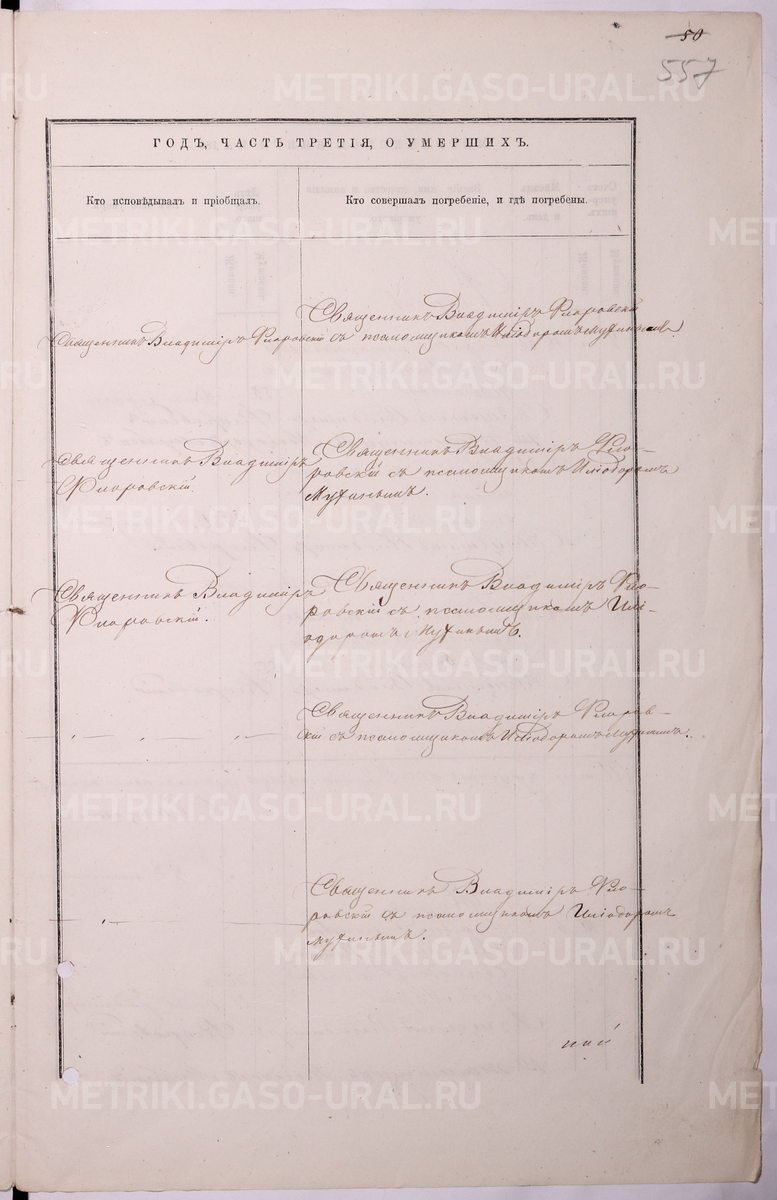 50
557
ГОДЪ, ЧАСТЬ ТРЕТІЯ, О УМЕРШИХЪ.
Кто исповѣдывалъ и пріобщалъ.
Кто совершалъ погребеніе, и гдѣ погребены.
Священникъ Владиміръ Флоровскій
Священникъ Владиміръ Флоровскій
съ псаломщикомъ Иліодоромъ Мухинымъ.
Священникъ Владиміръ
Флоровскій.
Священникъ Владиміръ Фло-
ровскій съ псаломщикомъ Иліодоромъ
Мухинымъ.
Священникъ Владиміръ
Флоровскій.
Священникъ Владиміръ Фло-
ровскій съ псаломщикомъ Илі-
одоромъ Мухинымъ.
Священникъ Владиміръ Флоров-
скій съ псаломщикомъ Иліодоромъ Мухинымъ.
Священникъ Владиміръ Фло-
ровскій съ псаломщикомъ Иліодоромъ
Мухинымъ.
METRIKI.GASO-URAL.RU